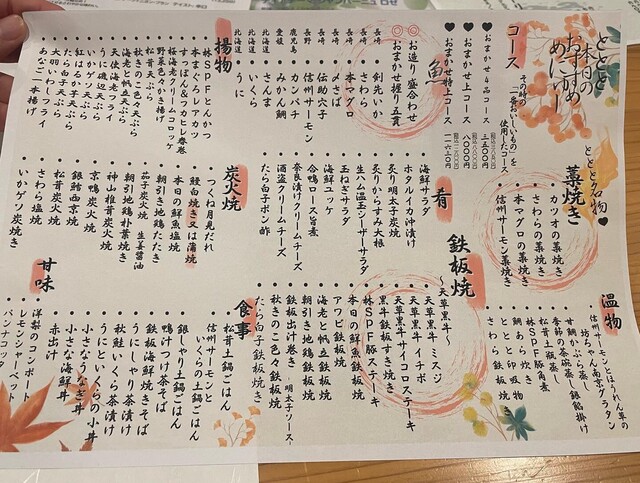 ととと
本日の
おすすめ
めにゅー
コース
その時の
「一番おいしいもの」を
使用したコース
♥ おまかせ4品コース 三五〇〇円
♥ おまかせ上コース 八〇〇〇円
♥ おまかせ特上コース
魚
◎お造り盛合わせ
◎おまかせ握り五貫
長崎・剣先いか
長崎・さわら
長崎・しめさば
長崎・本マグロ
長崎・伝助穴子
長野・信州サーモン
鹿児島・カンパチ
愛媛・みかん鯛
北海道・さんま
北海道・いくら
北海道・うに
揚物
・林SPFとんかつ
・本まぐろレアカツ
・すっぽん&フカヒレ春巻
・桜海老クリームコロッケ
・野菜色々かき揚げ
・松茸天ぷら
・秋きのこ色々天ぷら
・海老と帆立天ぷら
・天使海老フライ
・うに磯辺天ぷら
・いかゲソ天ぷら
・紅はるか芋天ぷら
・たら白子天ぷら
・大羽いわしフライ
・あなご一本揚げ
とととと名物♥
藁焼き
・カツオの藁焼き
・さわらの藁焼き
・本マグロの藁焼き
・信州サーモン藁焼き
肴
・海鮮サラダ
・ホタルイカ沖漬け
・炙り明太子
・炙りからすみ大根
・生ハム温玉シーザーサラダ
・玉ねぎサラダ
・海鮮ユッケ
・合鴨ロース岩煮
・奈良漬けクリームチーズ
・酒盗クリームチーズ
・たら白子ポン酢
炭火焼
・つくね月見だれ
・鰻白焼き又は蒲焼
・本日の鮮魚塩焼
・朝引き地鶏たたき
・茄子炭火焼 生姜醤油
・朝引き地鶏朴葉焼き
・神山椎茸炭火焼
・京鴨炭火焼
・銀鱈西京焼
・松茸炭火焼
・さわら塩焼
・いかゲソ炭焼き
温物
・信州サーモンとほうれん草の
坊ちゃん南京グラタン
・甘鯛かぶら蒸し 銀餡掛け
・季節の茶碗蒸し
・松茸土瓶蒸し
・林SPF豚角煮
・鯛あら炊き
・ととと印吸物
・さわら鉄板焼き
鉄板焼
〜天草黒牛〜
・天草黒牛 ミスジ
・天草黒牛 イチボ
・天草黒牛サイコロステーキ
・黒牛鉄板すき焼き
・林SPF豚ステーキ
・本日の鮮魚鉄板焼
・アワビ鉄板焼
・海老と帆立鉄板焼
・朝引き地鶏鉄板焼
・鉄板出汁巻き 明太子ソース
・秋きのこ色々鉄板焼
・たら白子鉄板焼き
食事
・松茸土鍋ごはん
・信州サーモンと
いくらの土鍋ごはん
・銀しゃり土鍋ごはん
・鴨けつけ茶そば
・鉄板海鮮焼きそば
・うにしゃり茶漬け
・秋鮭いくら茶漬け
・うにといくらの小丼
・小さなうなぎ丼
・小さな海鮮丼
・赤出汁
甘味
・洋梨のコンポート
・レモンシャーベット
・パンナコッタ